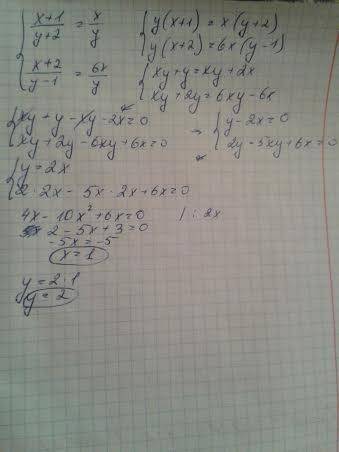 { (x+1)/(y+2) = x/y
{ (x+2)/(y-1) = 6x/y
{ y(x+1) = x(y+2)
{ y(x+2) = 6x(y-1)
{ xy+y = xy+2x
{ xy+2y = 6xy-6x
{ xy+y-xy-2x=0
{ xy+2y-6xy+6x=0
→ { y-2x=0
{ 2y-5xy+6x=0
{ y=2x
{ 2·2x-5x·2x+6x=0
4x-10x²+6x=0 | : 2x
2-5x+3=0
-5x=-5
x=1
y=2·1
y=2